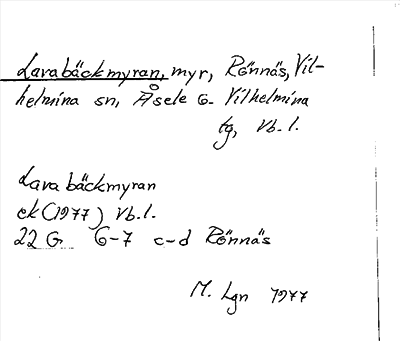 Lavabäckmyran, myr, Rönnäs, Vil-
helmina sn, Åsele o. Vilhelmina
tg, Vb. l.
Lavabäckmyran
ek (1977) Vb. l.
22 G 6-7 c-d Rönnäs
M. Lgn 1977